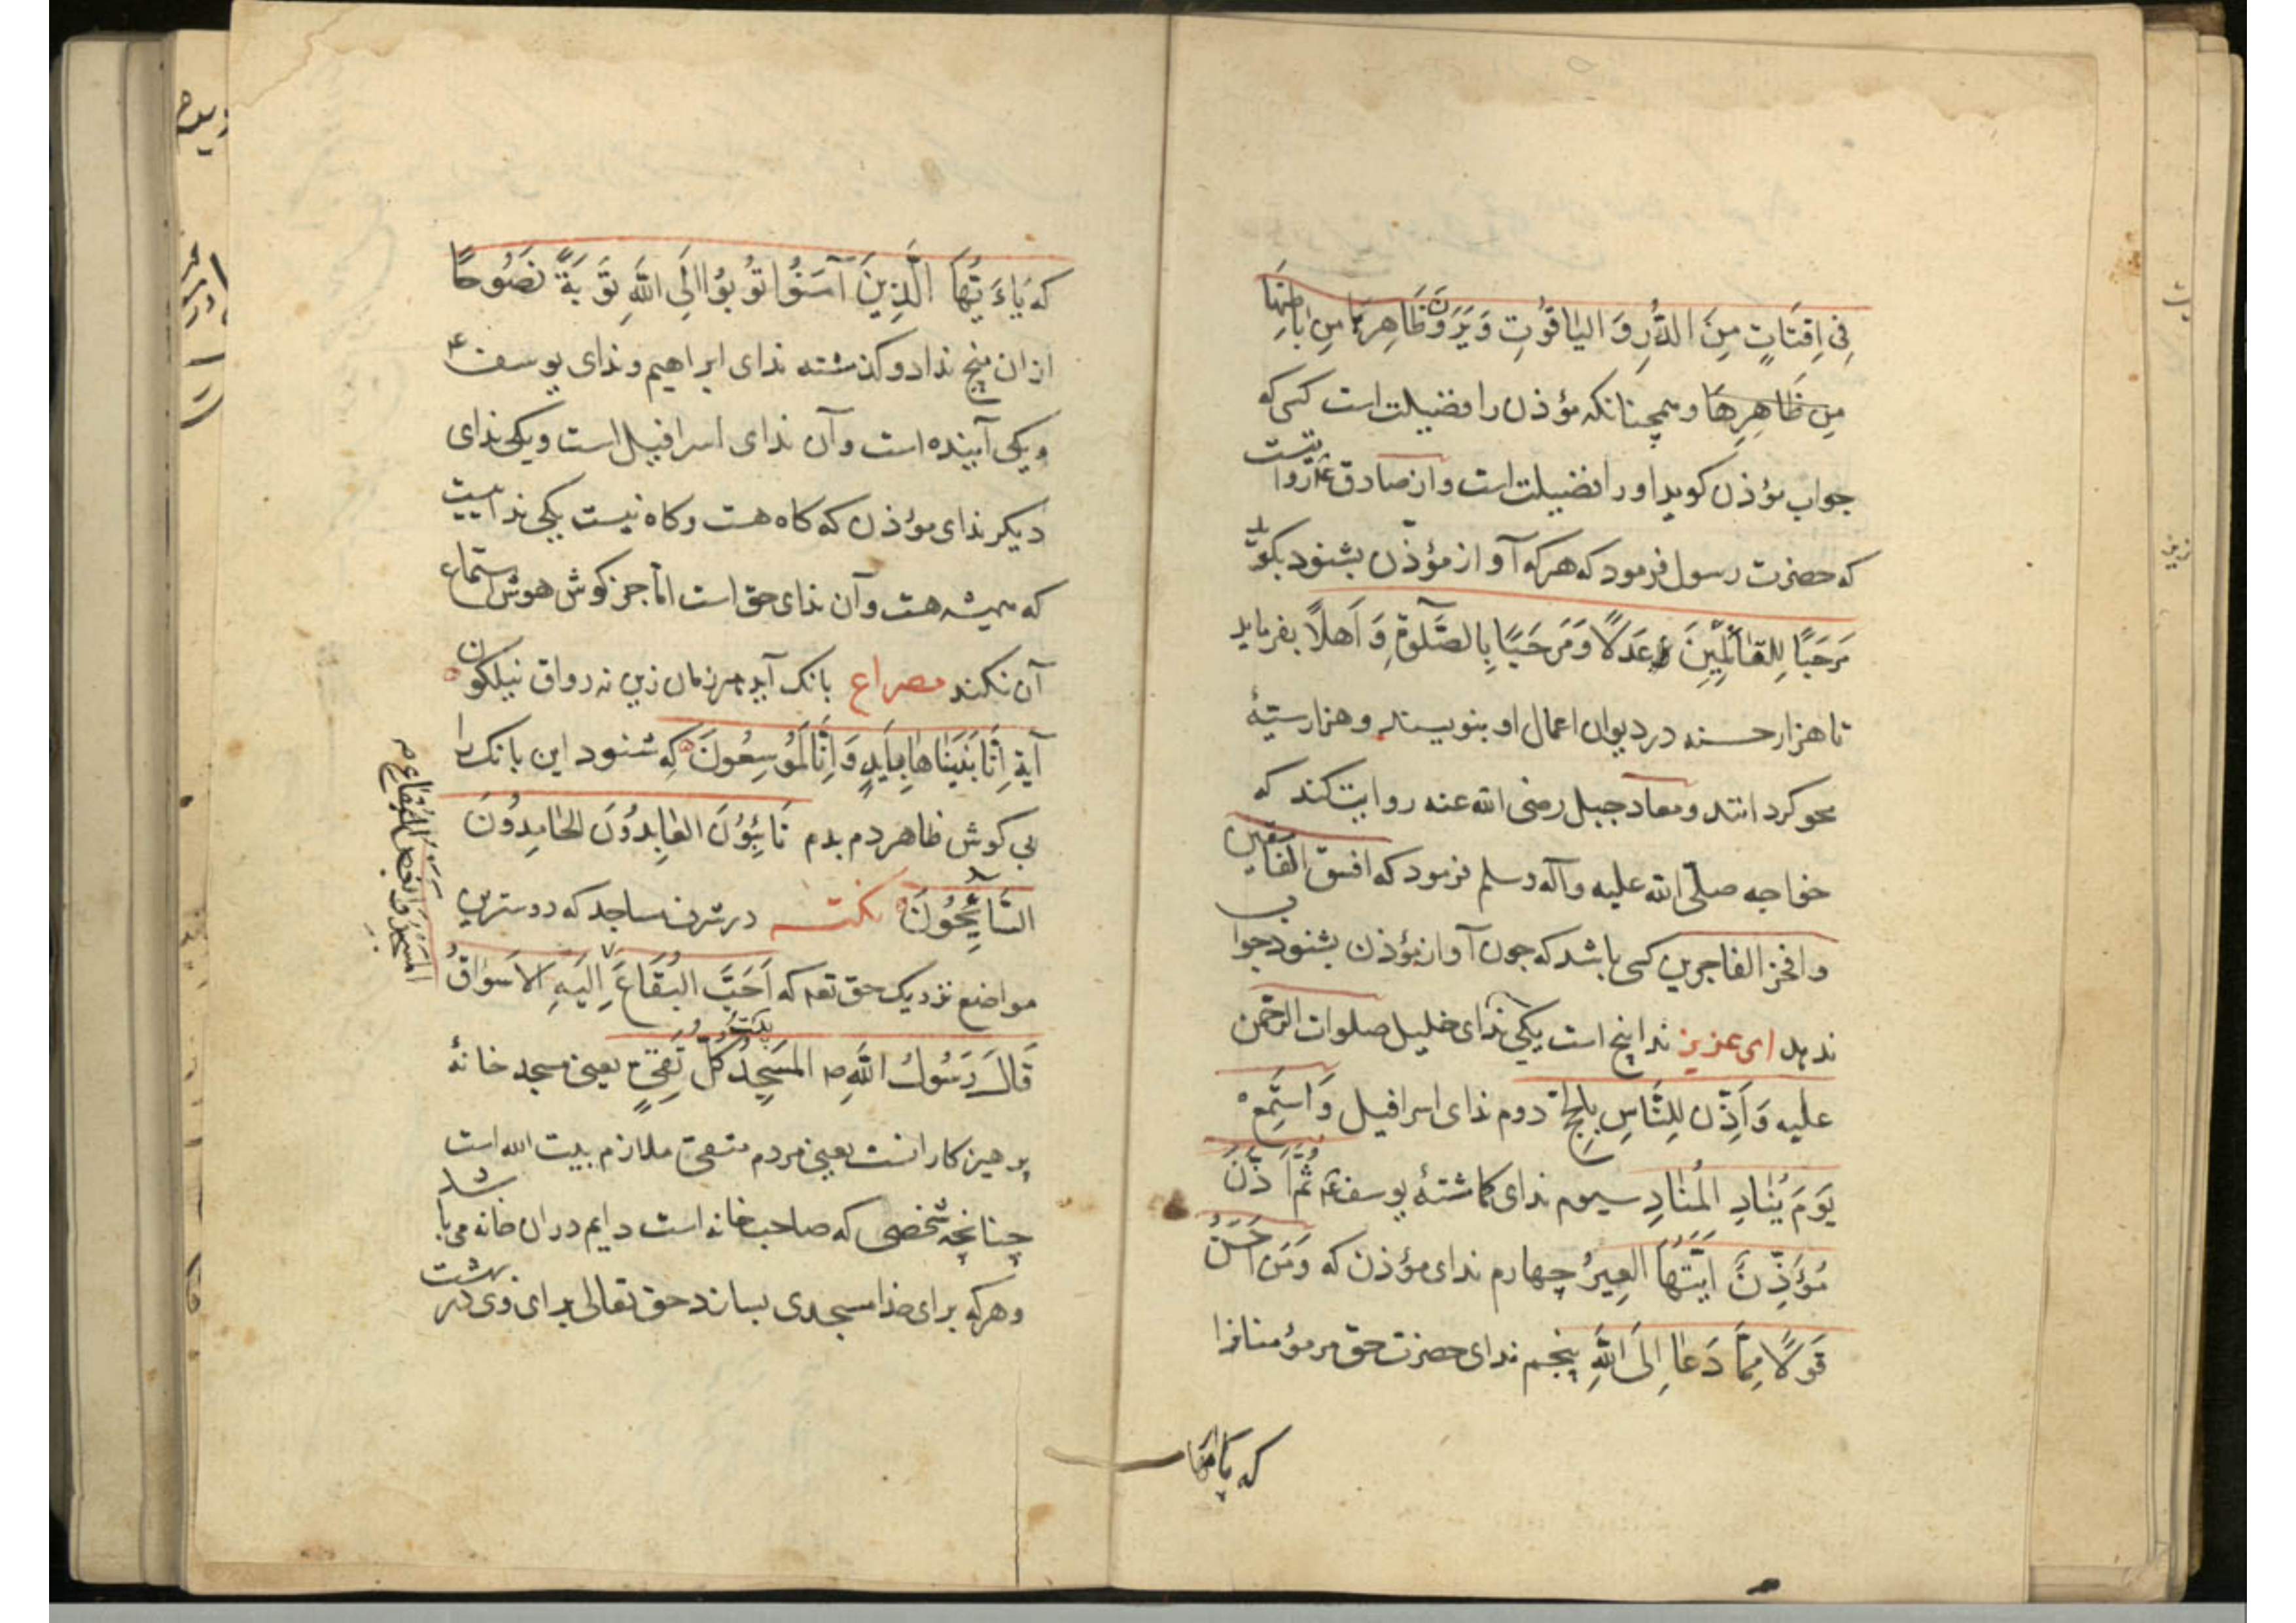 فِی اِقتَاتٍ مِنَ الدُّرِ وَ الیَاقُوتِ وَ یَرَوَنَ ظَاهِرهَا مِن بَاطِنِهَا
مِن ظَاهِرِهَا و همچنانکه مؤذن را فضیلت است کسی که
جواب مؤذن کوید او را فضیلت است و از صادق ع روایتست
که حضرت رسول فرمود که هرکه آواز مؤذّن بشنود بکوید
مَرحَبًا لِلقَائلِینَ عَدلًا وَ مَرحَبًا بِالصَّلٰوةِ وَ اَهلًا بفرماید
تا هزار حسنه در دیوان اعمال او بنویسند و هزار سیّئه
محو کردانند و معاد جبل رضی الله عنه روایت کند که
خواجه صلّی الله علیه و آله وسلم فرمود که افسق الفاسقین
و افجر الفاجرین کسی باشد که چون آواز مؤذن بشنود جواب
ندهد ای عزیز ندا پنج است یکی ندای خلیل صلوات الرّحمن
علیه وَ اَذِّن لِلنَّاسِ بِالحَجِّ دوم ندای اسرافیل وَ استَمِع
یَومَ یُنَادِ المُنَادِ سیوم ندای کماشتهٔ یوسف ع ثُمَّ اَذَّنَ
مُؤَذِّنٌ اَیَّتُهَا العِیرُ چهارم ندای مؤذن که وَ مَن اَحسَنُ
قَولًا مِمَّن دَعَا اِلَی اللهِ پنجم ندای حضرت حق مر مؤمنانرا
که یا ایها
که یَاءَیُّهَا الَّذِینَ آمَنُوا تُوبُوا اِلَی اللهِ تَوبَةً نَصُوحًا
ازان پنج ندا دو کذشته ندای ابراهیم و ندای یوسف ع
و یکی آینده است و آن ندای اسرافیل است و یکی ندای
دیکر ندای مؤذن که کاه هست و کاه نیست یکی نداییست
که همیشه هست و آن ندای حق است امّا جز کوش هوش استماع
آن نکند مصراع بانک آید هر زمان زین نه رواق نیلکون
آیة اِنَّا بَنَینَاهَا بِاَیدٍ وَ اِنَّا لَمُوسِعُونَ که شنود این بانک را
بی کوش ظاهر دم بدم تَائِبُونَ العَابِدُونَ الحَامِدُونَ
السَّائِحُونَ نکته در شرف مساجد که دوسترین
مواضع نزدیک حق تعه که اَحَبَّ البُقَاعَ اِلَیهِ الاَسوَاقُ
المَسَجِدُ وَ اَبغَضُ البُقَاعِ
قَالَ رَسُولُ اللهِ ص المَسجِدُ بَیتُ کُلِّ تَقِیٍّ یعنی مسجد خانهٔ
پرهیزکارانست یعنی مردم متقی ملازم بیت الله است
چنانچه شخصی که صاحب خانه است دایم دران خانه می باشد
و هرکه برای خدا مسجدی بسازد حق تعالی برای وی در بهشت